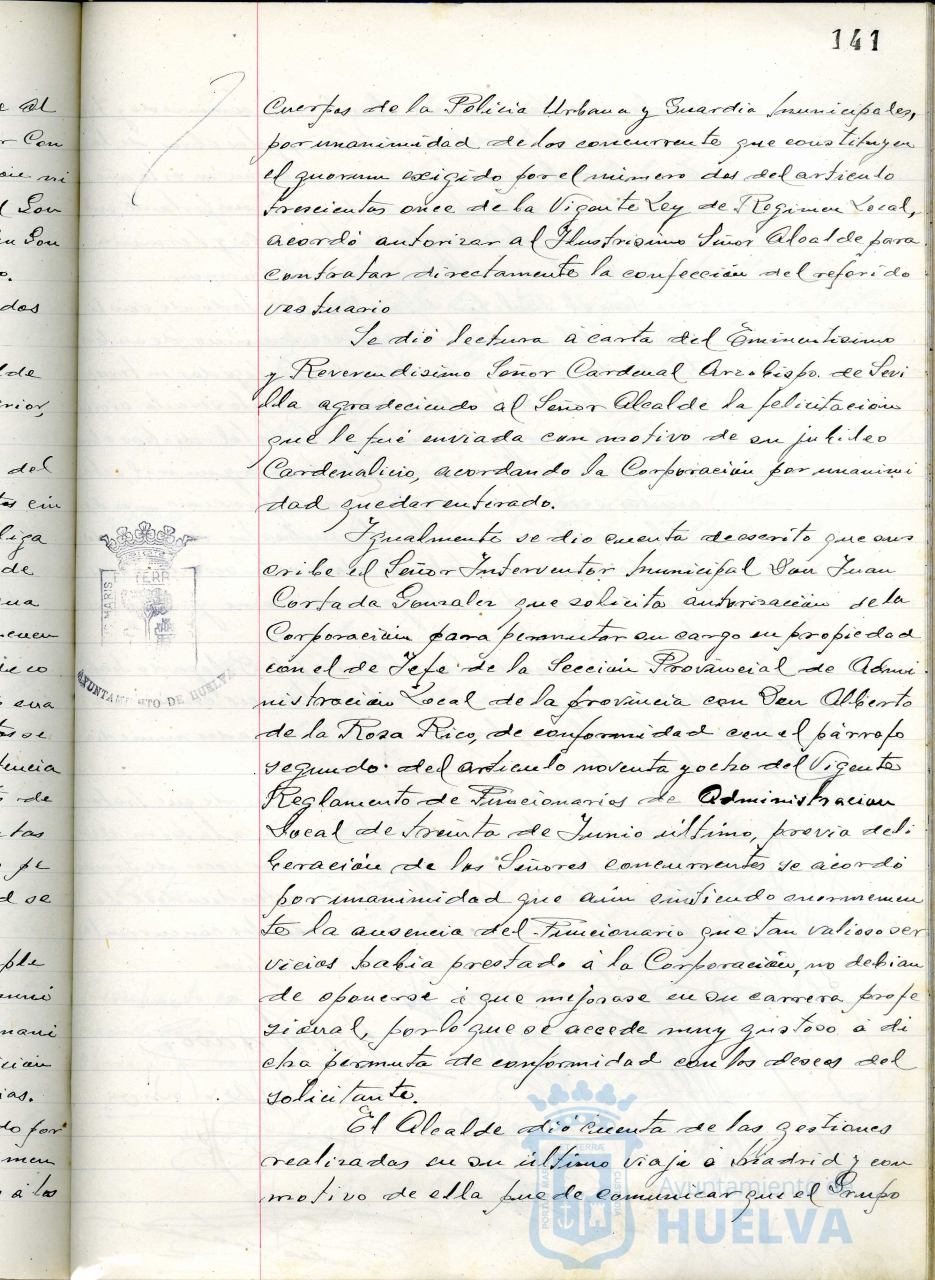 141
Cuerpos de la Policia Urbana y Guardia Municipales,
por unanimidad de los concurrente que constituyen
el quorum exigido por el número dos del articulo
trescientos once de la Vigente Ley de Regimen Local,
acordó autorizar al Ilustrisimo Señor Alcalde para
contratar directamente la confección del referido
vestuario
Se dió lectura á carta del Eminentisimo
y Reverendisimo Señor Cardenal Arzobispo. de Sevi
lla agradeciendo al Señor Alcalde la felicitación
que le fué enviada con motivo de su jubileo
Cardenalicio, acordando la Corporación por unanimi
dad quedar enterado.
Igualmente se dio cuenta de escrito que sus
cribe el Señor Interventor Municipal Don Juan
Cortada Gonzalez que solicita autorización de la
Corporación para permutar su cargo en propiedad
con el de Jefe de la Sección Provincial de Admi
nistración Local de la provincia con Don Alberto
de la Rosa Rico, de conformidad con el párrafo
segundo del articulo noventa y ocho del Vigente
Reglamento de Funcionarios de Administracion
Local de treinta de Junio último, previa deli
beración de los Señores concurrentes se ácordó
por unanimidad que aún sintiendo enormemen
te la ausencia del Funcionario que tan valioso ser
vicios habia prestado á la Corporación, no debian
de oponerse á que mejorase en su carrera profe
sional, por lo que se accede muy gustoso á di
cha permuta de conformidad con los deseos del
solicitante.
El Alcalde dió cuenta de las gestiones
realizadas en su último viaje á Madrid y con
motivo de ella puede comunicar que el Grupo
AYUNTAMIENTO DE HUELVA
Ayuntamiento de
HUELVA